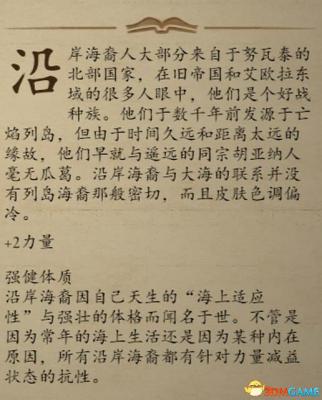 沿岸海裔人大部分来自于努瓦泰的
北部国家，在旧帝国和艾欧拉东
域的很多人眼中，他们是个好战
种族。他们于数千年前发源于亡
焰列岛，但由于时间久远和距离太远的
缘故，他们早就与遥远的同宗胡亚纳人
毫无瓜葛。沿岸海裔与大海的联系并没
有列岛海裔那般密切，而且皮肤色调偏
冷。
+2力量
强健体质
沿岸海裔因自己天生的“海上适应
性”与强壮的体格而闻名于世。不管是
因为常年的海上生活还是因为某种内在
原因，所有沿岸海裔都有针对力量减益
状态的抗性。
3DMGAME